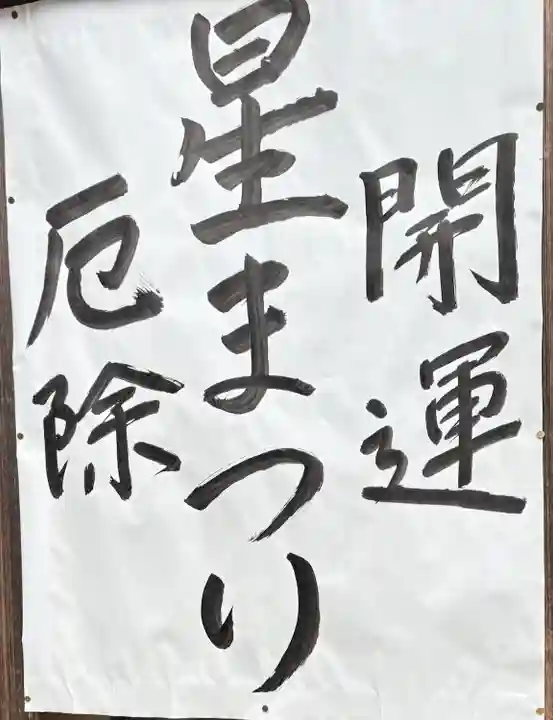 開運
星まつり
厄除